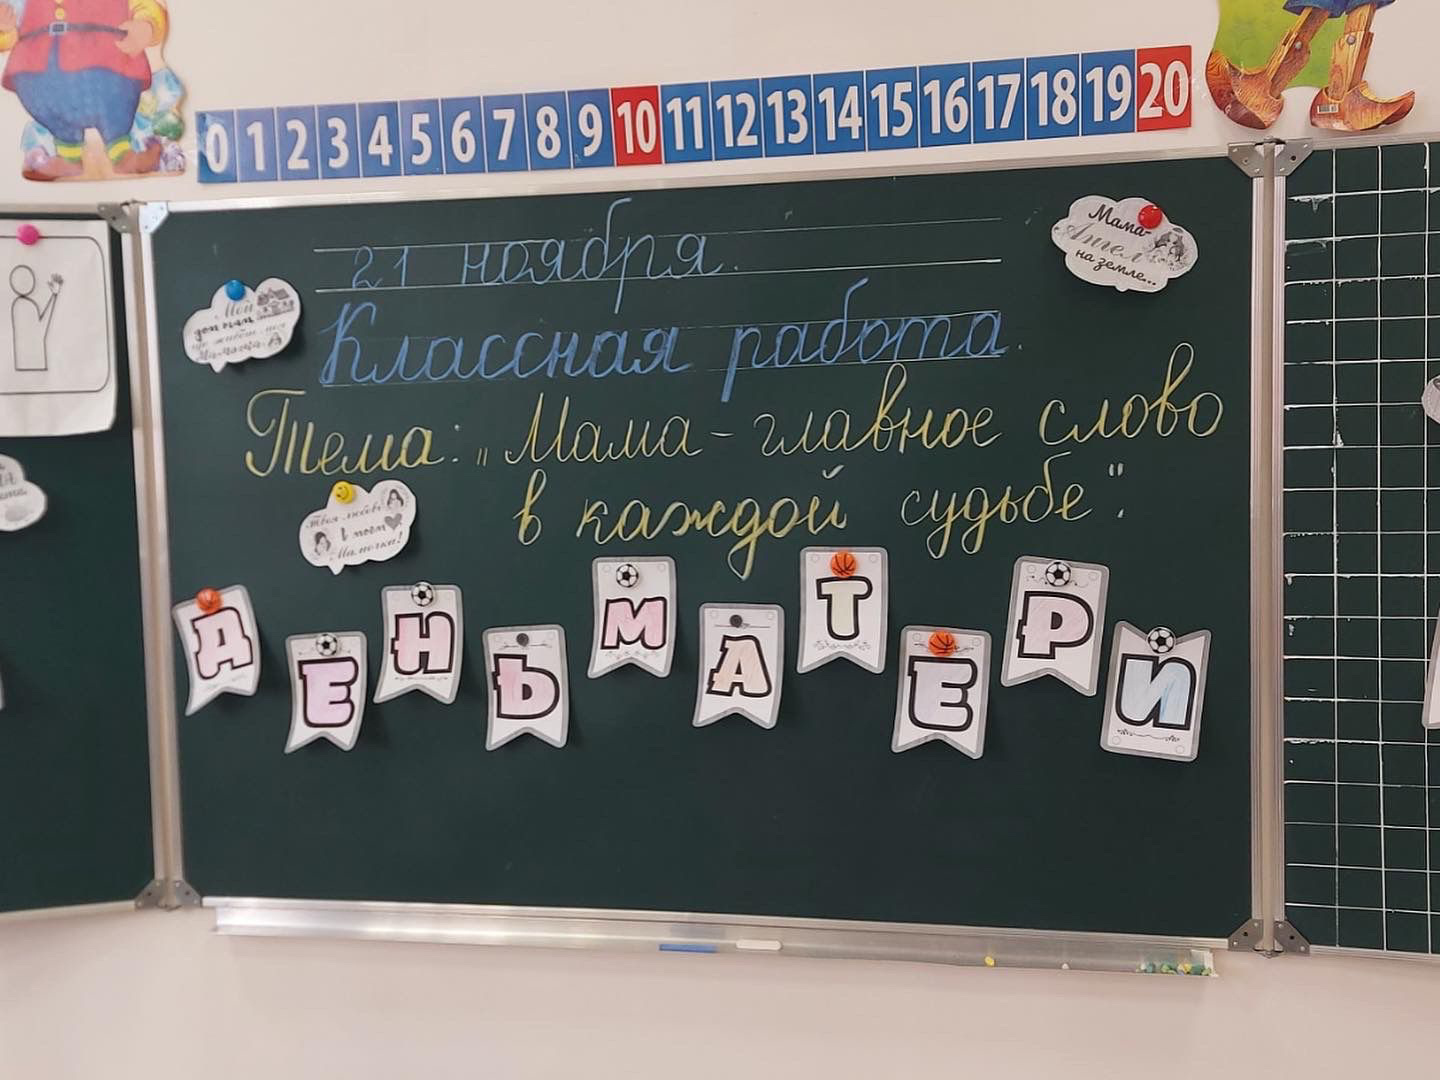 0 1 2 3 4 5 6 7 8 9 10 11 12 13 14 15 16 17 18 19 20
21 ноября.
Классная работа.
Тема: „Мама - главное слово
в каждой судьбе".
Мама-
Ангел
на земле...
Мой
дом там
где живёт моя
Мамочка
Твоя любовь
в моём
Мамочка!
ДЕНЬ МАТЕРИ